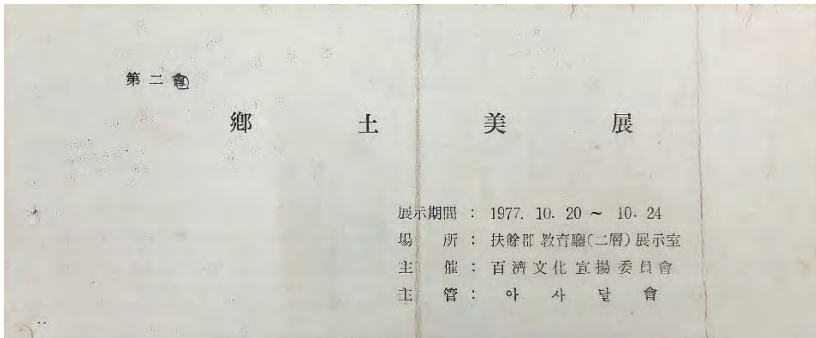 第二會
鄕土美展
展示期間 : 1977. 10. 20 ~ 10. 24
場所 : 扶餘郡 敎育廳(二層) 展示室
主催 : 百濟文化宣揚委員會
主管 : 아사달會